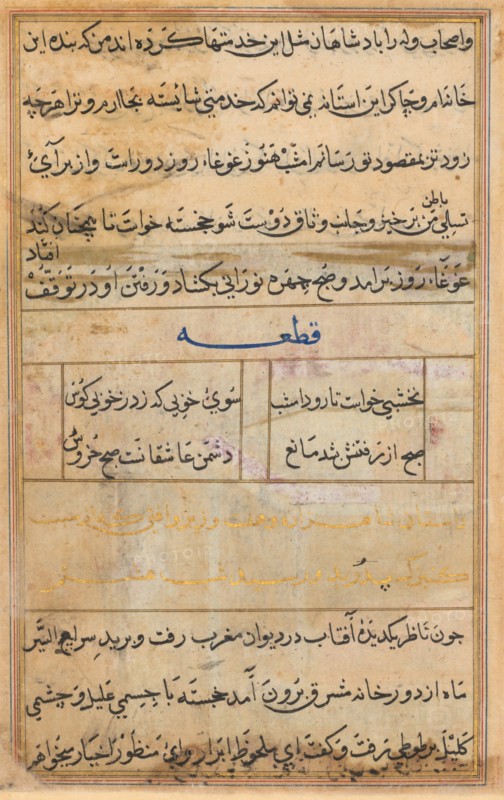 واصحاب وله را بادشاهان مثل این خدمتها کرده اند من که بنده این
خانه ام و چاکر این استانه نمی توانم که خدمتی شایسته بجا ارم و ترا هرچه
زود تر بمقصود تو رسانم امشب هنوز غوغاء روز دور است و از برآی
تسلی من برخیز و جانب وثاق دوست شو خجسته خواست تا همچنان کند
باطن
افتاد
غوغاء روز برامد و صبح چهره نورانی بکشاد و رفتن او در توقف
قطعه
نخشبی خواست تا رود امشب
سوی خوبی که زد در خوبی کوس
صبح از رفتنش شد مانع
دشمن عاشقانست صبح خروس
چون ناظر یکدیدهٔ آفتاب در دیوان مغرب رفت و برید سریع السیر
ماه از دور خانه مشرق برون آمد خجسته با جسمی علیل و چشمی
کلیل بر طوطی رفت و گفت ای ملحوظ ابرار وای منظور اخیار میخواهم